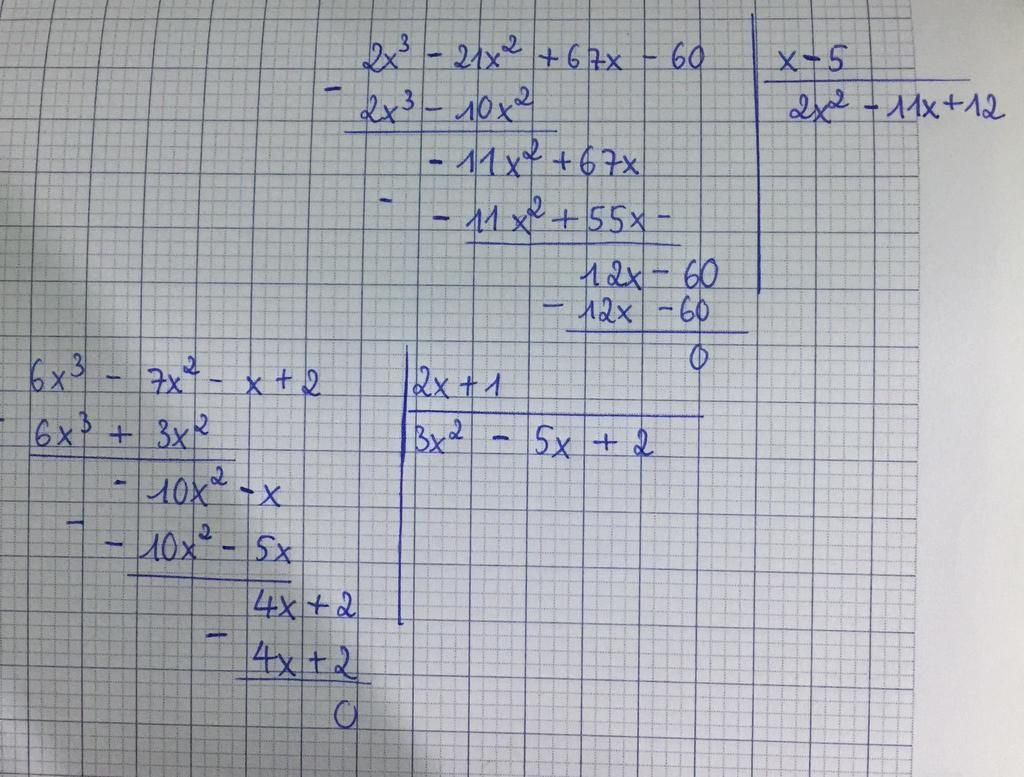 2x³ - 21x² + 67x - 60 | x - 5
- 2x³ - 10x² | 2x² - 11x + 12
- 11x² + 67x
- - 11x² + 55x -
12x - 60
- 12x - 60
0
6x³ - 7x² - x + 2 | 2x + 1
- 6x³ + 3x² | 3x² - 5x + 2
- 10x² - x
- - 10x² - 5x
4x + 2
- 4x + 2
0